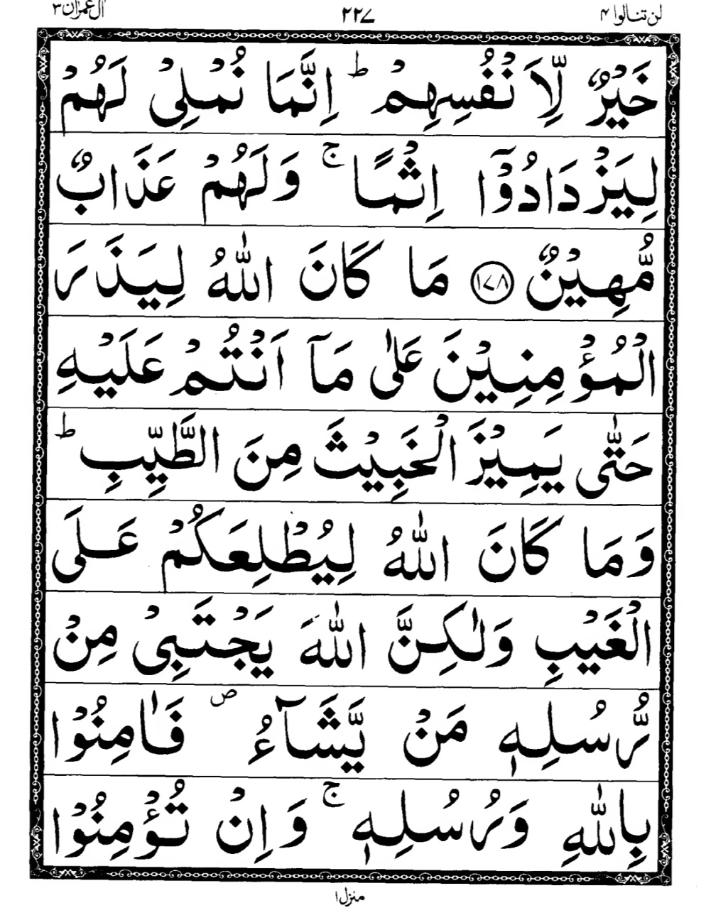 لن تنالوا ۴ ۲۲۷ اٰل عمرٰن ۳
خَيْرٌ لِّاَنْفُسِهِمْ ؕ اِنَّمَا نُمْلِىْ لَهُمْ
لِيَزْدَادُوْۤا اِثْمًا ۚ وَلَهُمْ عَذَابٌ
مُّهِيْنٌ ﴿۱۷۸﴾ مَا كَانَ اللّٰهُ لِيَذَرَ
الْمُؤْمِنِيْنَ عَلٰى مَاۤ اَنْتُمْ عَلَيْهِ
حَتّٰى يَمِيْزَ الْخَبِيْثَ مِنَ الطَّيِّبِ ؕ
وَمَا كَانَ اللّٰهُ لِيُطْلِعَكُمْ عَلَى
الْغَيْبِ وَلٰكِنَّ اللّٰهَ يَجْتَبِىْ مِنْ
رُّسُلِهٖ مَنْ يَّشَآءُ ۪ فَاٰمِنُوْا
بِاللّٰهِ وَرُسُلِهٖ ۚ وَاِنْ تُؤْمِنُوْا
منزل ۱